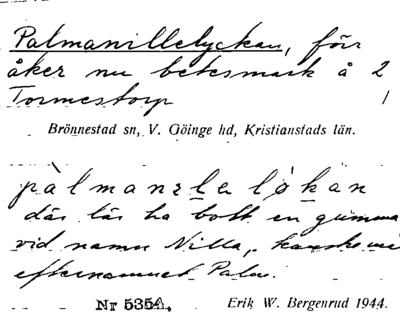 Palmanillelyckan, förr
åker nu betesmark å 2
Tormestorp 1
Brönnestad sn, V. Göinge hd, Kristianstads län.
palmanɛla løkan
där lär ha bott en gumma
vid namn Nilla, kanske med
efternamnet Palm.
Nr 5350. Erik W. Bergenrud 1944.